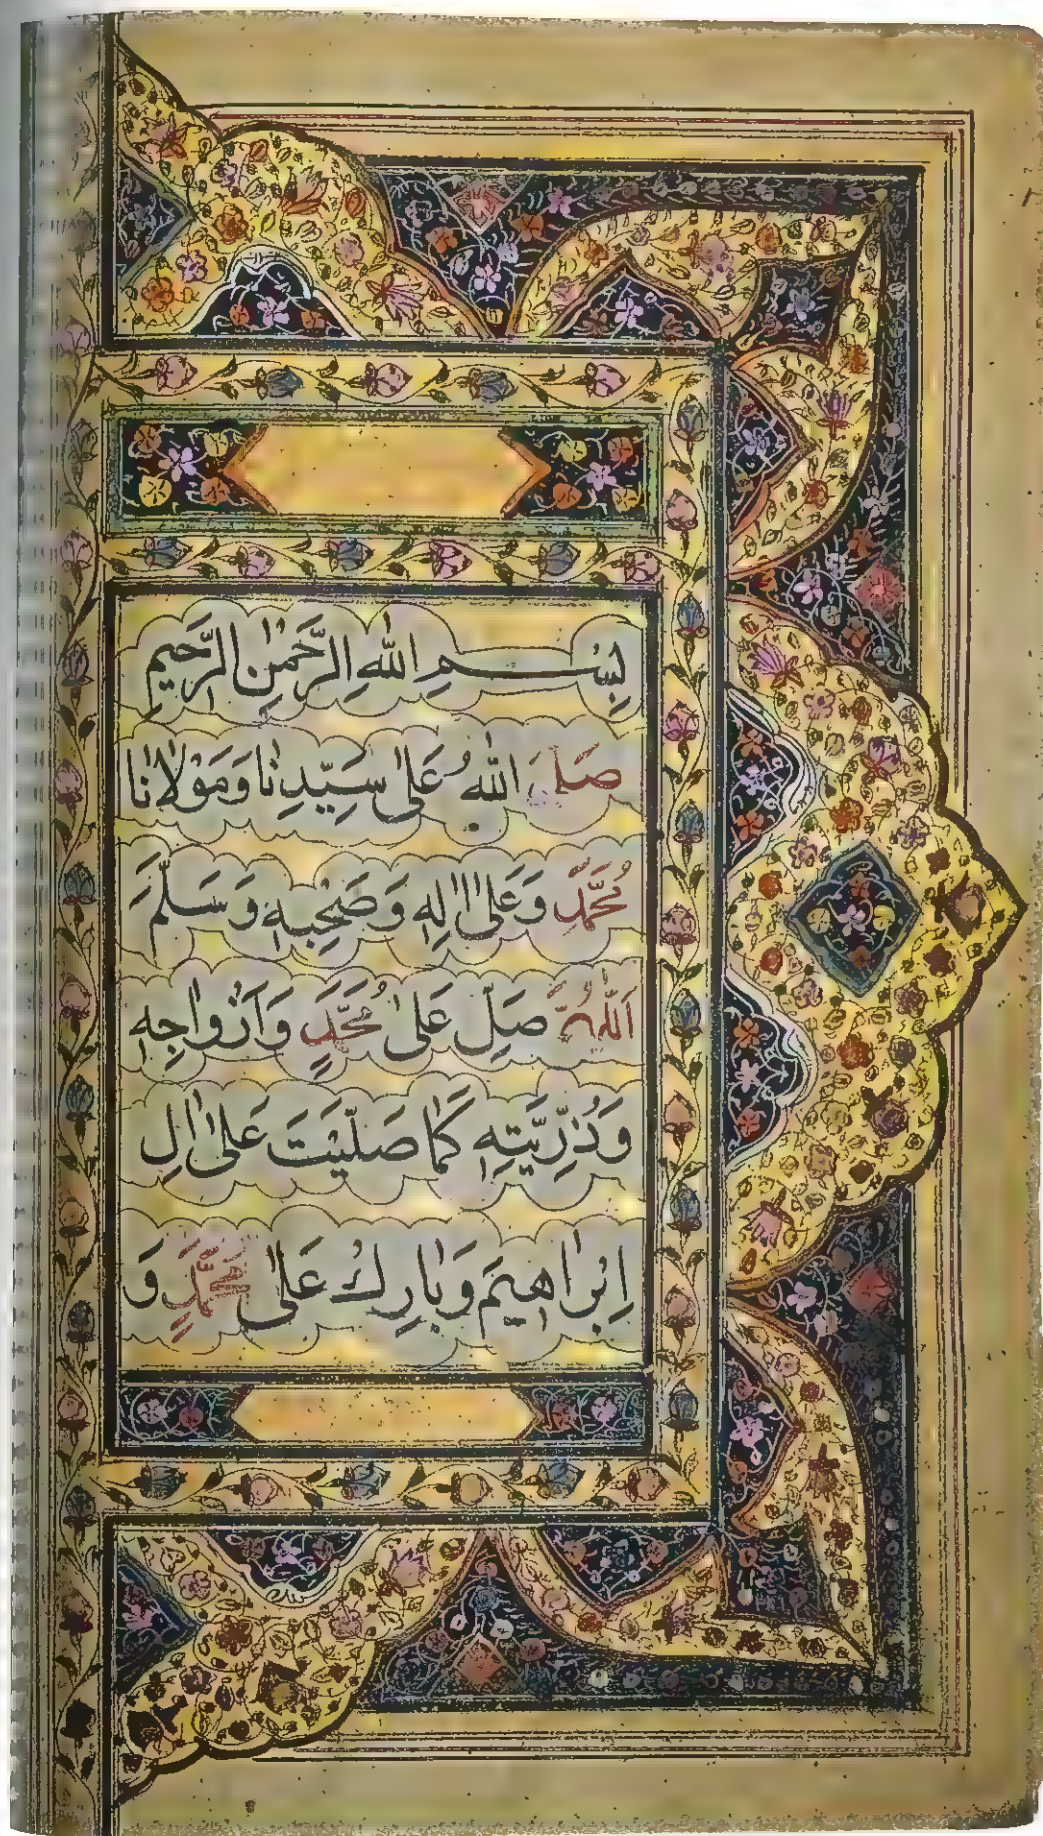 بِسْمِ اللّٰهِ الرَّحْمٰنِ الرَّحِيْمِ
صَلَّى اللّٰهُ عَلٰى سَيِّدِنَا وَمَوْلَانَا
مُحَمَّدٍ وَعَلٰى اٰلِهٖ وَصَحْبِهٖ وَسَلَّمَ
اَللّٰهُمَّ صَلِّ عَلٰى مُحَمَّدٍ وَاَزْوَاجِهٖ
وَذُرِّيَّتِهٖ كَمَا صَلَّيْتَ عَلٰى اٰلِ
اِبْرَاهِيْمَ وَبَارِكْ عَلٰى مُحَمَّدٍ وَ